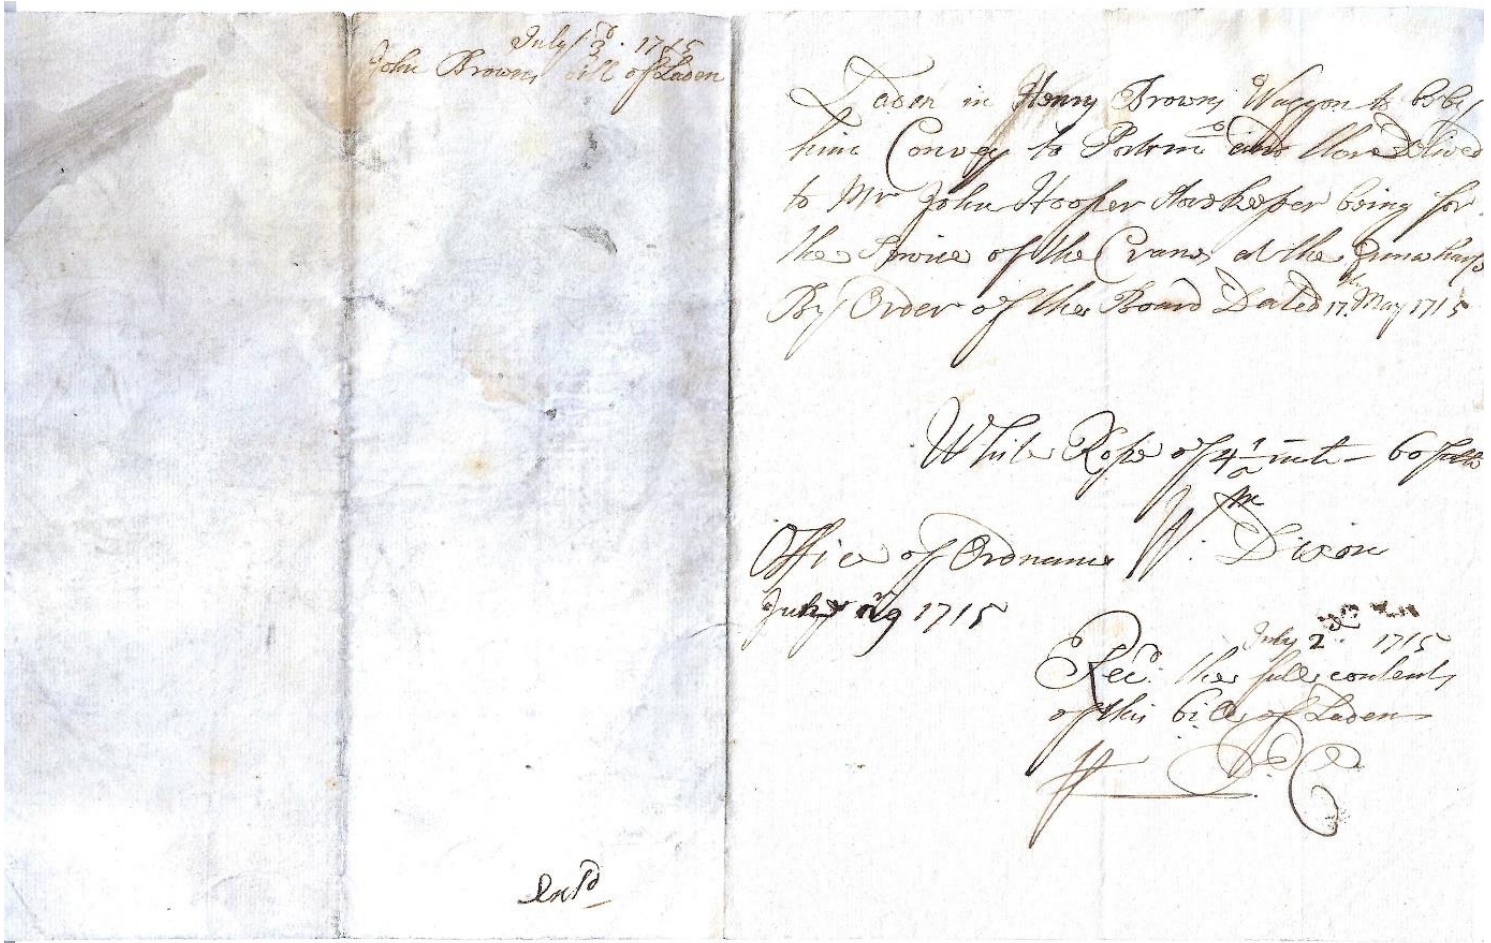 July 3d. 1715
John Browns bill of Laden
Laden in Henry Browns Waggon to be by
him Convey to Portsmo and there Delived
to Mr John Hooper Storekeeper being for
the Service of the Cranes at the
By Order of the Board Dated 17th May 1715
White Rope of 4 1/2 inch - 60
Wm Dixon
Office of Ordnance
1715
July 2d. 1715
Recd. the full contents
of this bill of Laden
Entd